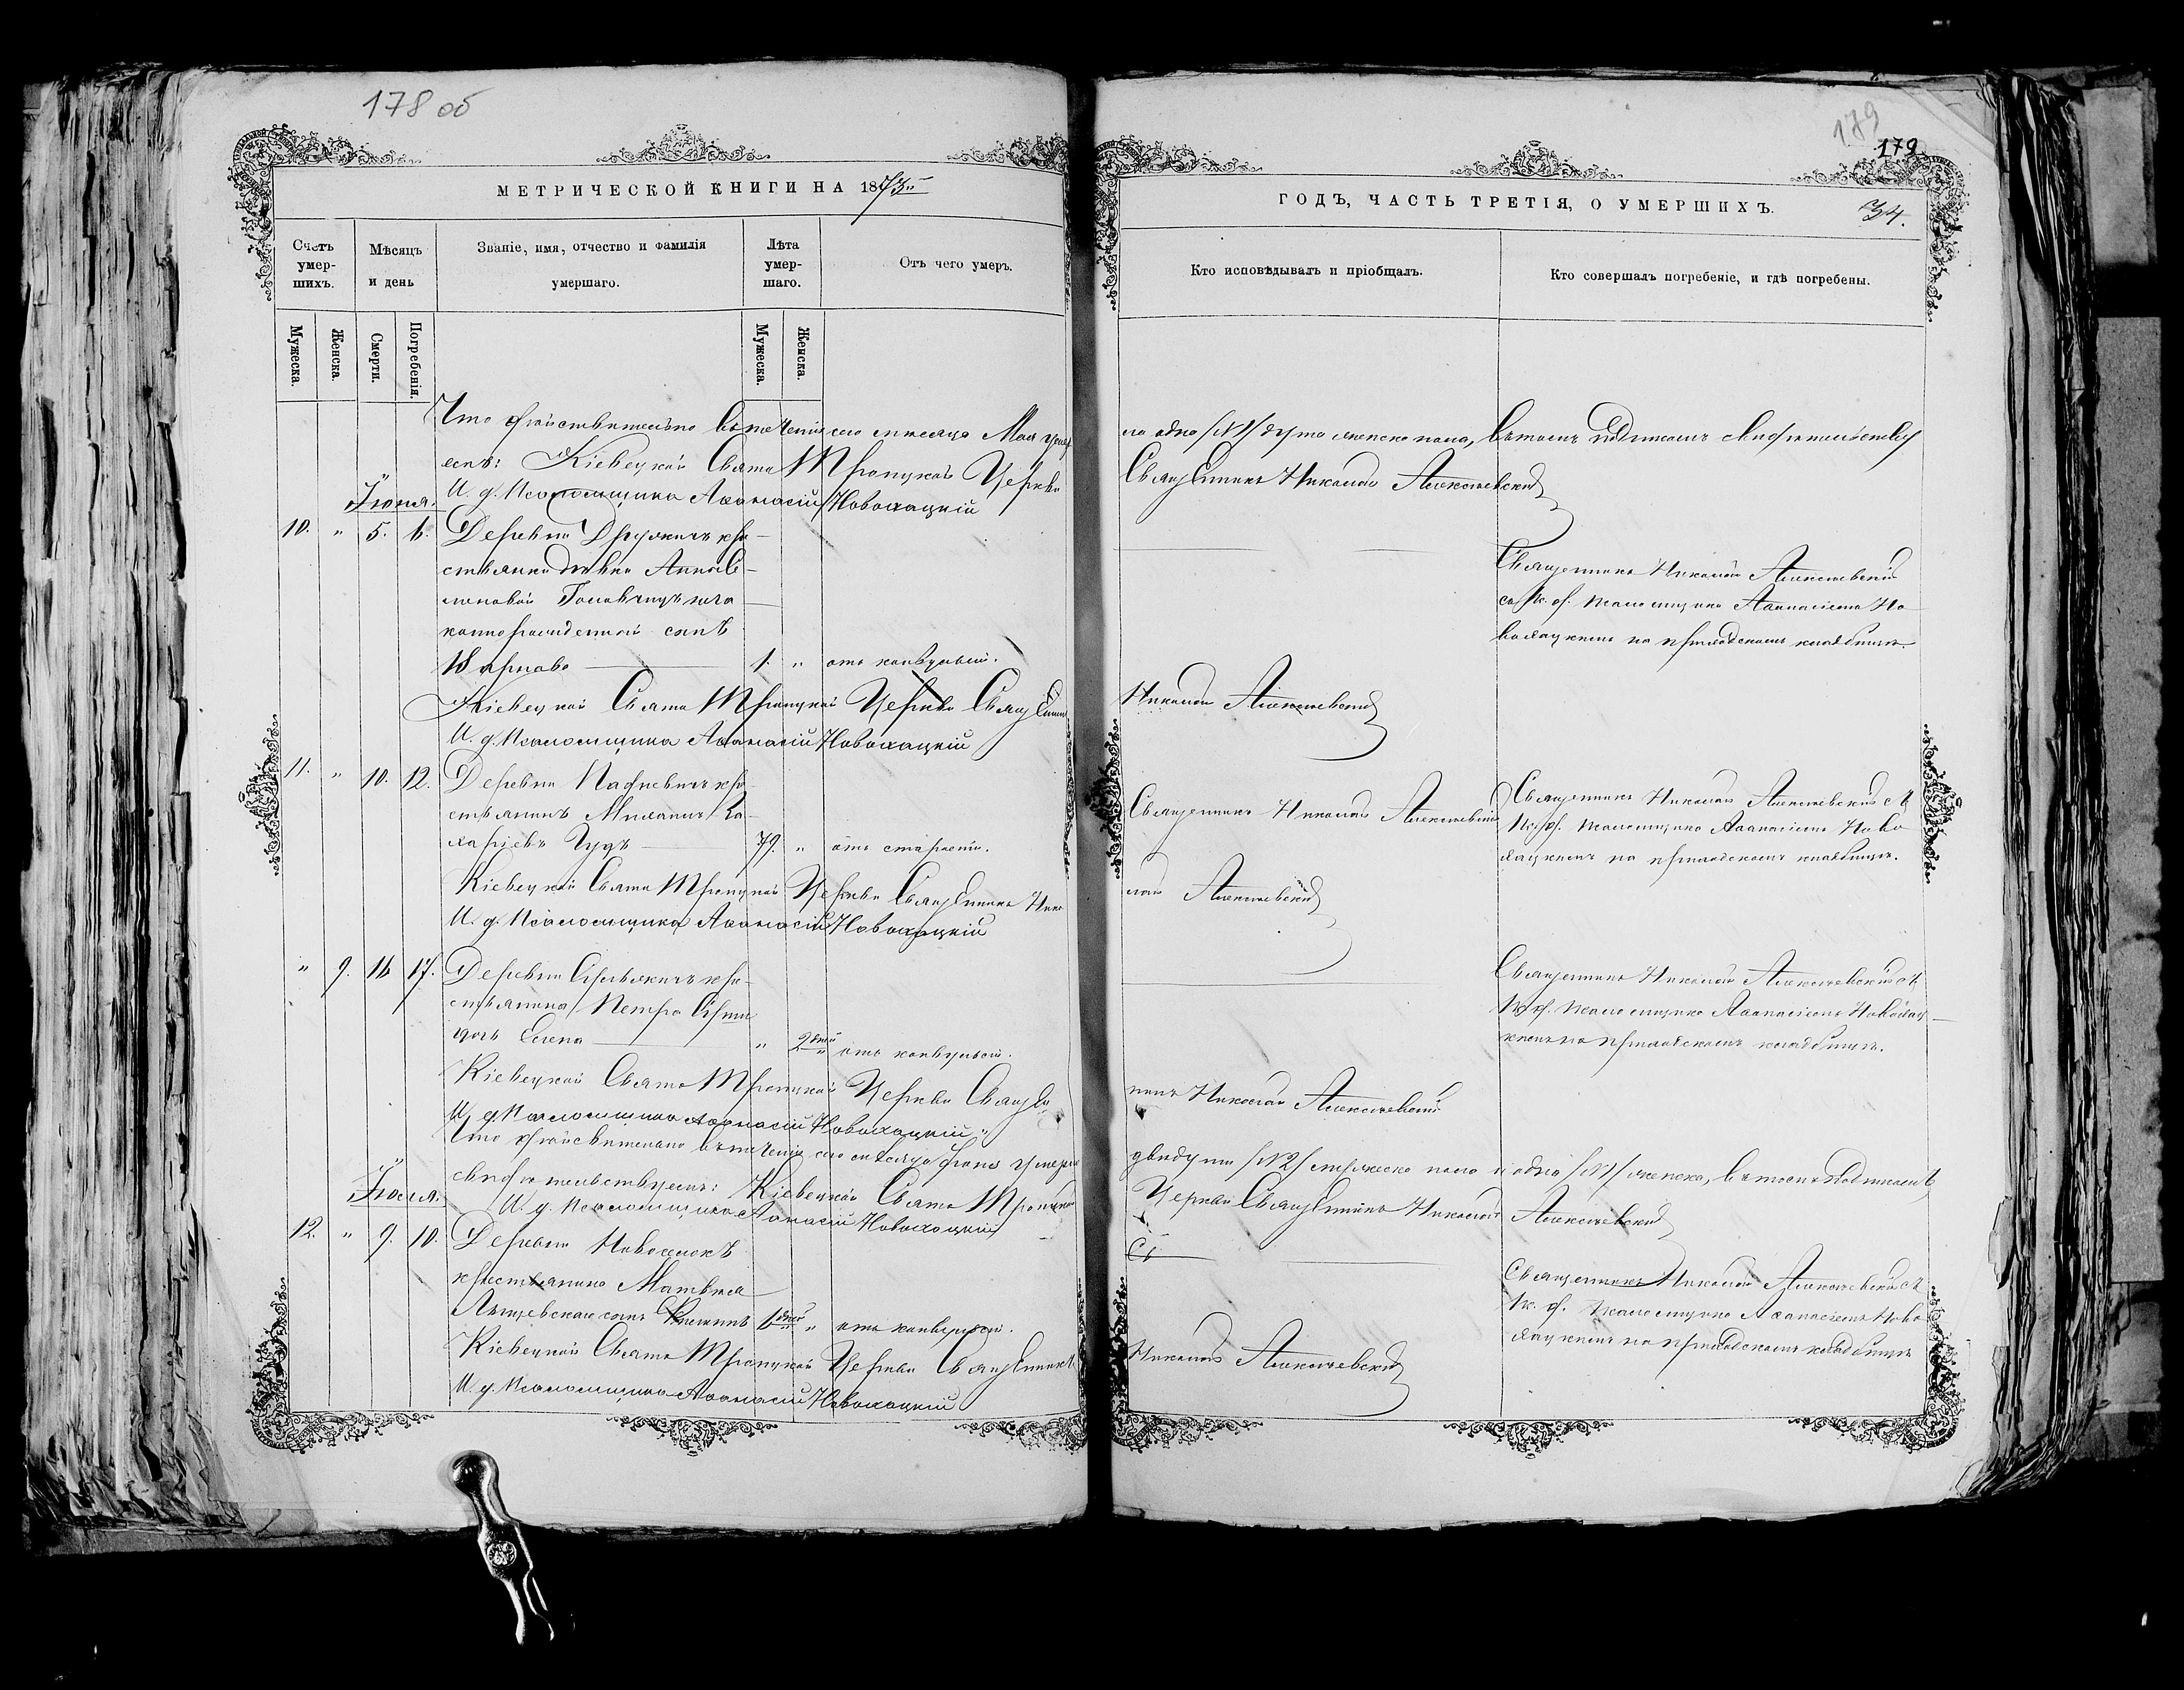 178 об
МЕТРИЧЕСКОЙ КНИГИ НА 1873й
Счетъ умершихъ.
Мѣсяцъ и день
Званіе, имя, отчество и фамилія умершаго.
Лѣта умершаго.
Отъ чего умеръ.
Мужеска.
Женска.
Смерти.
Погребенія.
Мужеска.
Женска.
Что дѣйствительно въ теченіи сего мѣсяца Мая
Кіевецкой Свято Троицкой Церкви
И. д. Псаломщика Аѳанасій Новолацкій
Іюня.
10. " 5. 6. Деревни кре-
стьянки дѣвки Анны
законнорожденный сынъ
1. " отъ конвульсій.
Кіевецкой Свято Троицкой Церкви Священникъ
И. д. Псаломщика Аѳанасій Новолацкій
11. " 10. 12. Деревни кре-
стьянинъ
79. " отъ старости.
Кіевецкой Свято Троицкой Церкви Священникъ Нико
И. д. Псаломщика Аѳанасій Новолацкій
" 9. 16 17. Деревни кре-
стьянина Петра
дочь Елена " 2 дней отъ конвульсій.
Кіевецкой Свято Троицкой Церкви Священ
И. д. Псаломщика Аѳанасій Новолацкій
Что дѣйствительно въ теченіи сего мѣсяца Іюня умерло
свидѣтельствуемъ: Кіевецкой Свято Троицкой
И. д. Псаломщика Аѳанасій Новолацкій
Іюля.
12. " 9. 10. Деревни Новоселокъ
крестьянина Матвѣя
сынъ 6 дней " отъ конвульсій.
Кіевецкой Свято Троицкой Церкви Священникъ
И. д. Псаломщика Аѳанасій Новолацкій
179
179
ГОДЪ, ЧАСТЬ ТРЕТІЯ, О УМЕРШИХЪ.
34.
Кто исповѣдывалъ и пріобщалъ.
Кто совершалъ погребеніе, и гдѣ погребены.
ло одно /№1/ душа женска пола, въ томъ подписомъ свидѣтельству
Священникъ Николай Алексѣевскій
Священникъ Николай Алексѣевскій
съ И. д. псаломщика Аѳанасіемъ Но
волацкимъ на приходскомъ кладбищѣ.
Николай Алексѣевскій
Священникъ Николай Алексѣевскій
Священникъ Николай Алексѣевскій съ
И. д. псаломщика Аѳанасіемъ Ново
лацкимъ на приходскомъ кладбищѣ.
лай Алексѣевскій
Священникъ Николай Алексѣевскій съ
И. д. псаломщика Аѳанасіемъ Новолац-
кимъ на приходскомъ кладбищѣ.
никъ Николай Алексѣевскій
двѣ души /№2/ мужеска пола и одна /№1/ женска, въ томъ подписомъ
Церкви Священникъ Николай Алексѣевскій
Священникъ Николай Алексѣевскій съ
И. д. псаломщика Аѳанасіемъ Ново
лацкимъ на приходскомъ кладбищѣ
Николай Алексѣевскій